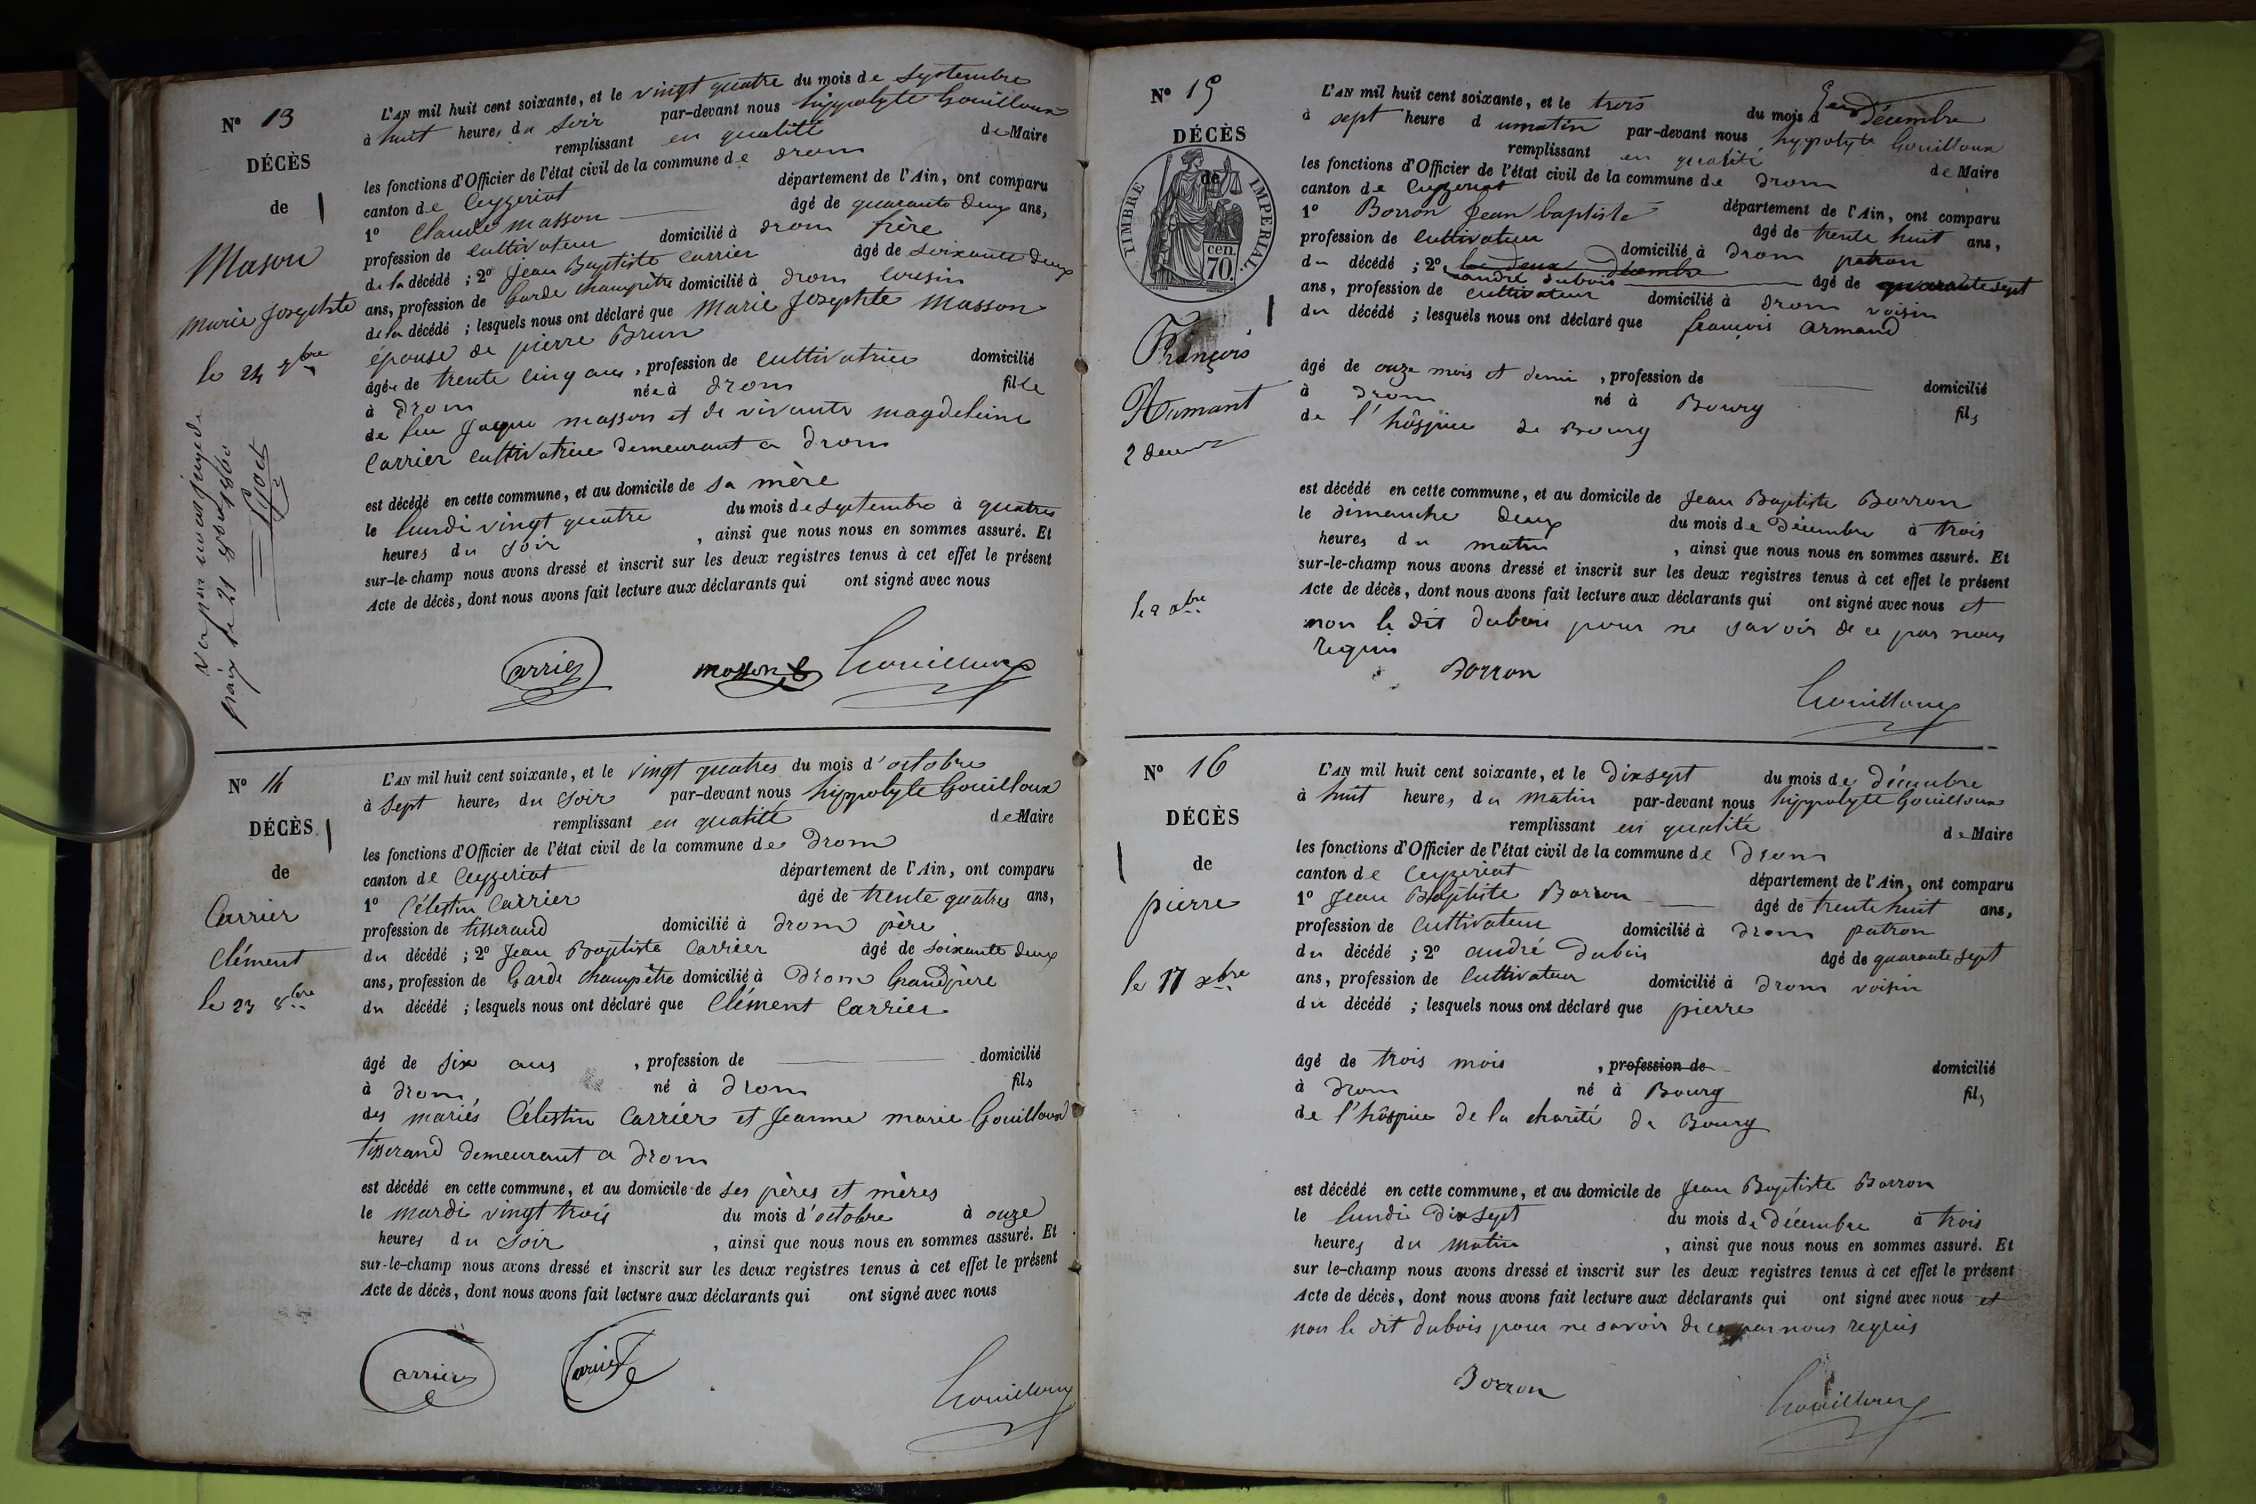 N° 13
DÉCÈS
de
Mason
Marie Josephte
le 24 7bre
L'AN mil huit cent soixante, et le vingt quatre du mois de Septembre
à huit heures du Soir par-devant nous hippolyte Gouilloux
remplissant en qualité de Maire
les fonctions d'Officier de l'état civil de la commune de drom
canton de Ceyzeriat département de l'Ain, ont comparu
1° Claude Masson âgé de quarante deux ans,
profession de Cultivateur domicilié à drom frère
de la décédé ; 2° Jean Baptiste Carrier âgé de soixante deux
ans, profession de Garde champêtre domicilié à drom cousin
de la décédé ; lesquels nous ont déclaré que Marie Josephte Masson
épouse de pierre Brun
âgée de trente cinq ans, profession de cultivatrice domicilié
à drom née à drom fille
de feu Jaque masson et de vivante magdeleine
Carrier cultivatrice demeurant a drom
est décédé en cette commune, et au domicile de sa mère
le lundi vingt quatre du mois de Septembre à quatres
heures du Soir, ainsi que nous nous en sommes assuré. Et
sur-le-champ nous avons dressé et inscrit sur les deux registres tenus à cet effet le présent
Acte de décès, dont nous avons fait lecture aux déclarants qui ont signé avec nous
Carrier masson C Gouilloux
N° 14
DÉCÈS
de
Carrier
Clément
le 23 8bre
L'AN mil huit cent soixante, et le vingt quatres du mois d'octobre
à Sept heures du Soir par-devant nous hippolyte Gouilloux
remplissant en qualité de Maire
les fonctions d'Officier de l'état civil de la commune de Drom
canton de Ceyzeriat département de l'Ain, ont comparu
1° Célestin Carrier âgé de trente quatres ans,
profession de tisserand domicilié à drom père
du décédé ; 2° Jean Baptiste Carrier âgé de soixante deux
ans, profession de Garde champêtre domicilié à Drom Grandpère
du décédé ; lesquels nous ont déclaré que Clément Carrier
âgé de six ans, profession de domicilié
à drom né à drom fils
des mariés Célestin Carrier et Jeanne marie Gouilloux
tisserand demeurant a drom
est décédé en cette commune, et au domicile de ses pères et mères
le mardi vingt trois du mois d'octobre à onze
heures du Soir, ainsi que nous nous en sommes assuré. Et
sur-le-champ nous avons dressé et inscrit sur les deux registres tenus à cet effet le présent
Acte de décès, dont nous avons fait lecture aux déclarants qui ont signé avec nous
Carrier Carrier Gouilloux
N° 15
DÉCÈS
de
TIMBRE IMPERIAL.
cen. 70
François
Armant
le 2 xbre
L'AN mil huit cent soixante, et le trois du mois d Décembre
à sept heure d umatin par-devant nous hyppolyte Gouilloux
remplissant en qualité de Maire
les fonctions d'Officier de l'état civil de la commune de drom
canton de Ceyzeriat département de l'Ain, ont comparu
1° Borron Jean baptiste âgé de trente huit ans,
profession de Cultivateur domicilié à Drom patron
du décédé ; 2° le deux Décembre
andré dubois âgé de quarante sept
ans, profession de cultivateur domicilié à drom voisin
du décédé ; lesquels nous ont déclaré que françois armand
âgé de onze mois et demi, profession de domicilié
à Drom né à Bourg fils
de l'hôspice de Bourg
est décédé en cette commune, et au domicile de Jean Baptiste Borron
le dimanche deux du mois de Décembre à trois
heures du matin, ainsi que nous nous en sommes assuré. Et
sur-le-champ nous avons dressé et inscrit sur les deux registres tenus à cet effet le présent
Acte de décès, dont nous avons fait lecture aux déclarants qui ont signé avec nous et
non le dit dubois pour ne savoir de ce par nous
requis
Borron Gouilloux
N° 16
DÉCÈS
de
pierre
le 17 xbre
L'AN mil huit cent soixante, et le Dix sept du mois de décembre
à huit heures du matin par-devant nous hippolyte Gouilloux
remplissant en qualité de Maire
les fonctions d'Officier de l'état civil de la commune de Drom
canton de Ceyzeriat département de l'Ain, ont comparu
1° Jean Baptiste Borron âgé de trente huit ans,
profession de Cultivateur domicilié à drom patron
du décédé ; 2° andré Dubois âgé de quarante sept
ans, profession de Cultivateur domicilié à drom voisin
du décédé ; lesquels nous ont déclaré que pierre
âgé de trois mois, profession de domicilié
à Drom né à Bourg fils
de l'hôspice de la charité de Bourg
est décédé en cette commune, et au domicile de Jean Baptiste Borron
le lundi dix sept du mois de décembre à trois
heures du matin, ainsi que nous nous en sommes assuré. Et
sur le-champ nous avons dressé et inscrit sur les deux registres tenus à cet effet le présent
Acte de décès, dont nous avons fait lecture aux déclarants qui ont signé avec nous et
non le dit dubois pour ne savoir de ce par nous requis
Borron Gouilloux